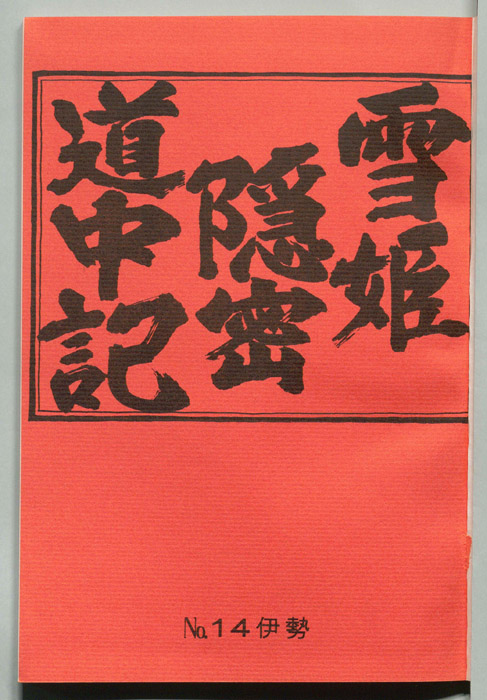 雪姫
隠密
道中記
No.14伊勢